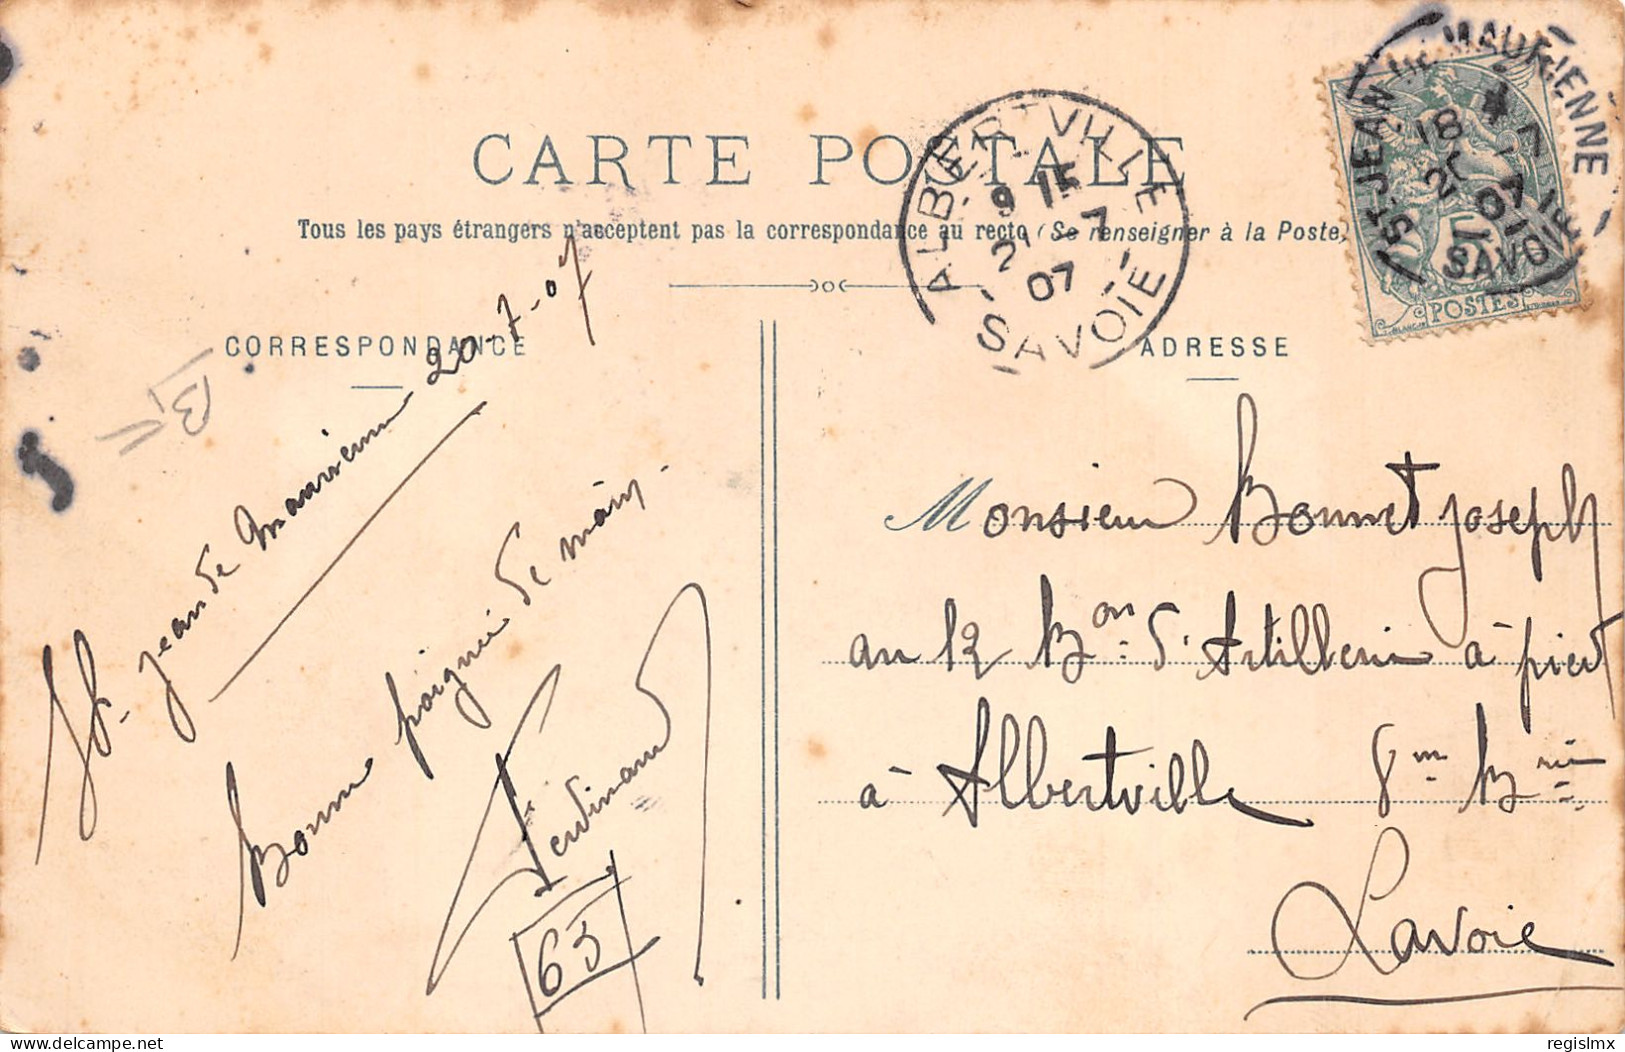 CARTE POSTALE
Tous les pays étrangers n'acceptent pas la correspondance au recto (Se renseigner à la Poste)
CORRESPONDANCE
ADRESSE
ALBERTVILLE
9 15
2 -7
07
SAVOIE
ST-JEAN DE MAURIENNE
18
20 7
07
SAVOIE
POSTES
St- Jean de Maurienne 20-7-07
Bonne poignée de main.
Ferdinand
63
Monsieur Bonnet Joseph
au 12 Bon d'Artillerie à pied
à Albertville 8me Brie
Savoie
delcampe.net
regislmx